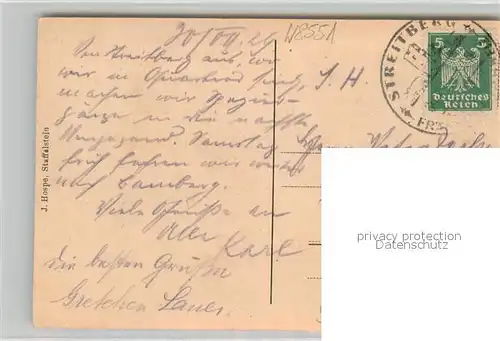 30/VII. 26
W8551
Von Streitberg aus, wo
wir in Quartier sind,
machen wir Spazier-
gänge in die nächste
Umgegend. Samstag
früh fahren wir weiter
nach Bamberg.
Viele Grüße an
Alle Karl
die besten Grüße
Gretchen
S. H.
STREITBERG
5
Deutsches
Reich
J. Hospe, Staffelstein
privacy protection
Datenschutz